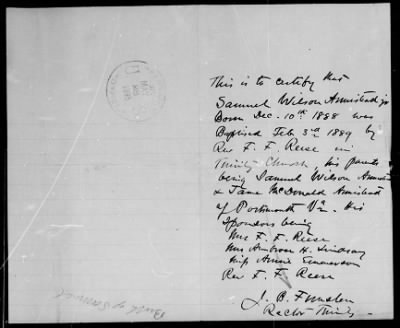 This is to certify that
Samuel Wilson Armistead jr
Born Dec. 10th 1888 was
Baptised Feb 3rd 1889 by
Rev F. F. Reese in
Trinity Church, his parents
being Samuel Wilson Armistead
& Jane McDonald Armistead
of Portsmouth Va. His
Sponsors being
Mrs F. F. Reese
Mrs Ambrose H. Lindsay
Miss Annie Emmerson
Rev F. F. Reese
J. B. Funsten
Rector Trinity